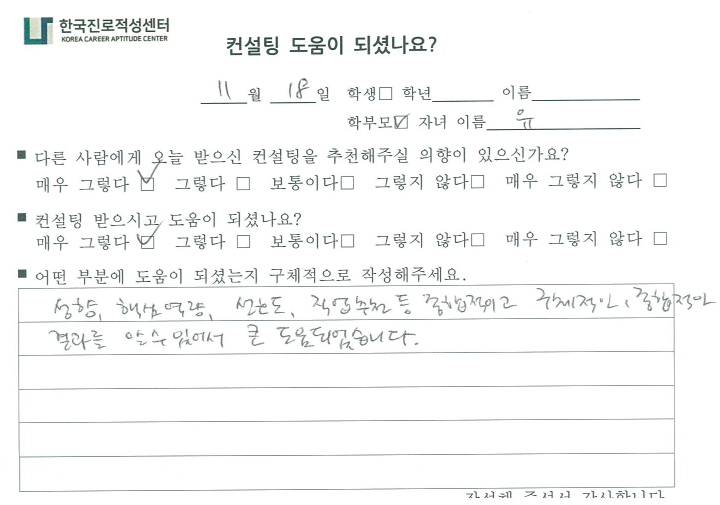 한국진로적성센터
KOREA CAREER APTITUDE CENTER
컨설팅 도움이 되셨나요?
11월 18일 학생□ 학년 이름
학부모☑ 자녀 이름 유
■ 다른 사람에게 오늘 받으신 컨설팅을 추천해주실 의향이 있으신가요?
매우 그렇다 ☑ 그렇다 □ 보통이다□ 그렇지 않다□ 매우 그렇지 않다 □
■ 컨설팅 받으시고 도움이 되셨나요?
매우 그렇다 ☑ 그렇다 □ 보통이다□ 그렇지 않다□ 매우 그렇지 않다 □
■ 어떤 부분에 도움이 되셨는지 구체적으로 작성해주세요.
성향, 핵심역량, 선호도, 직업추천 등 종합적이고 구체적인, 종합적인
결과를 알수있어서 큰 도움되었습니다.
작성해 주셔서 감사합니다